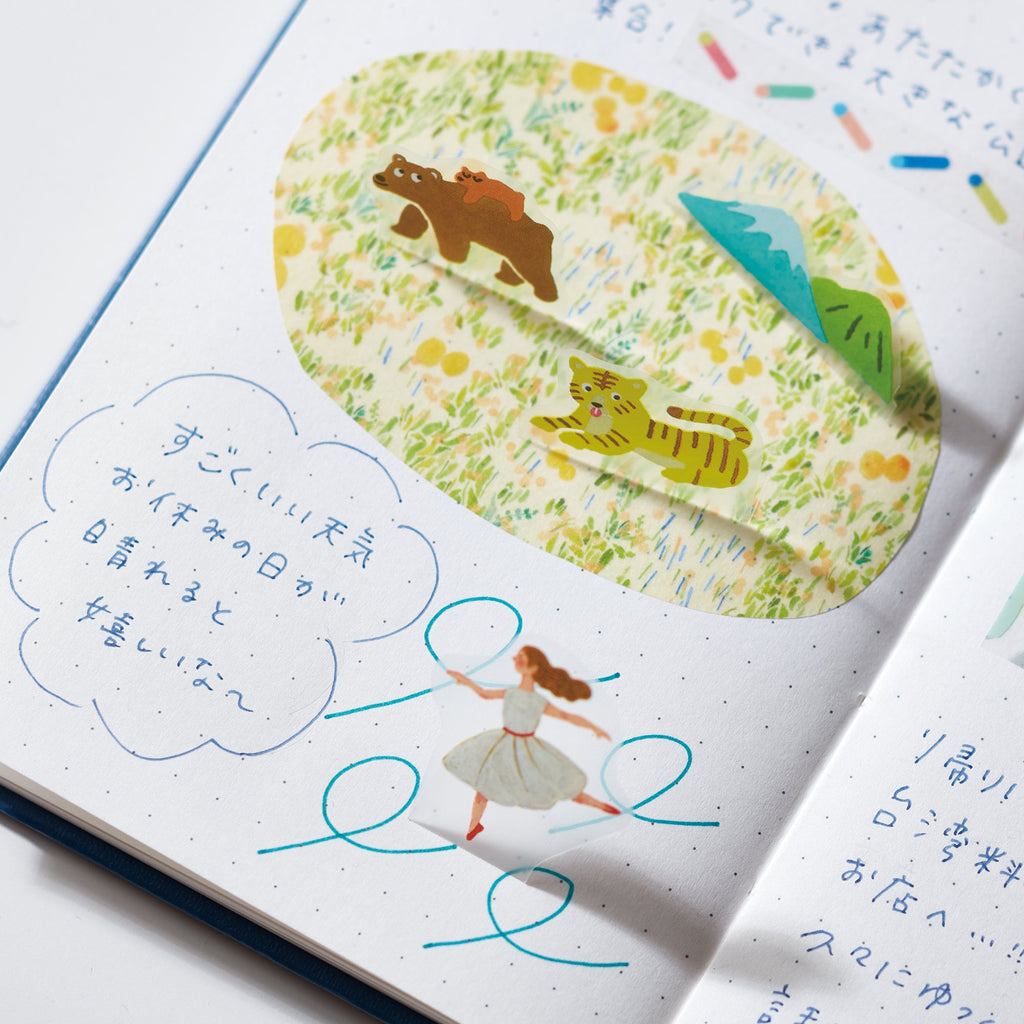 集合！
あたたかく
できる大きな公園
すごくいい天気
お休みの日が
日晴れると
嬉しいな〜
り帰り！
台湾料
お店へ…!!
久々にゆっく